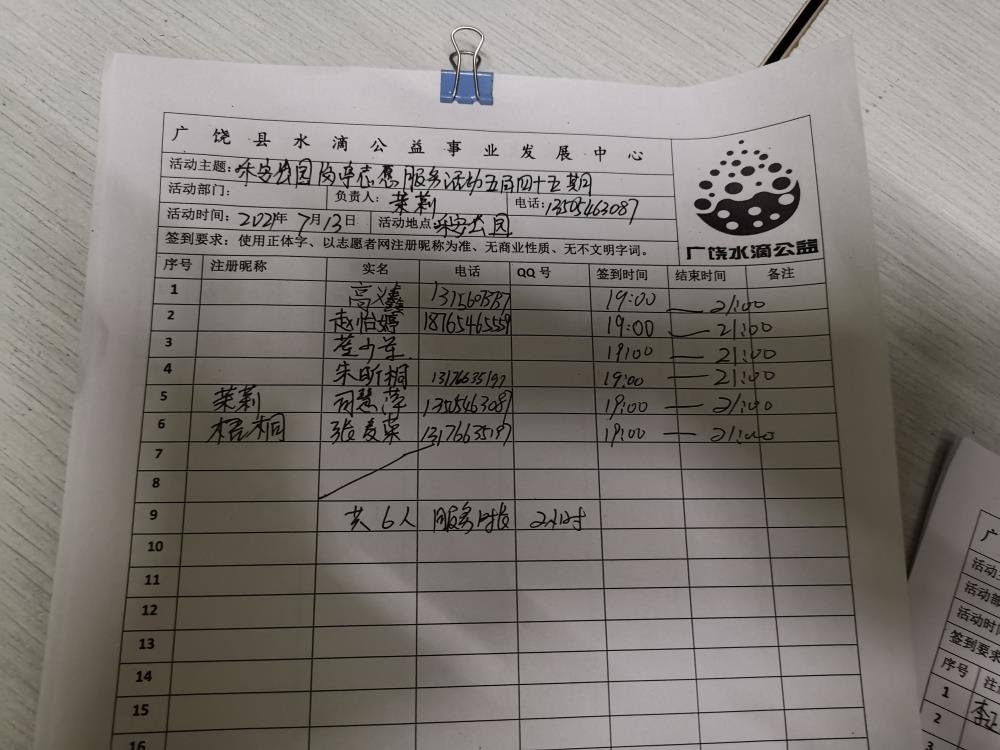 广饶县水滴公益事业发展中心
活动主题：乐安公园岗亭志愿服务活动五百四十五期
活动部门： 负责人：茉莉 电话：13505463087
活动时间：2021年7月13日 活动地点：乐安公园
签到要求：使用正体字、以志愿者网注册昵称为准、无商业性质、无不文明字词。
广饶水滴公益
序号 注册昵称 实名 电话 QQ号 签到时间 结束时间 备注
1 19:00 — 21:00
2 赵怡婷 18765465559 19:00 — 21:00
3 19:00 — 21:00
4 朱昕桐 13176635197 19:00 — 21:00
5 茉莉 13505463087 19:00 — 21:00
6 梧桐 张爱菜 13176635197 19:00 — 21:00
7
8
9 共6人 服务时长 2小时
10
11
12
13
14
15
16
广
活动
活动部
活动时
签到要求
序号 注
1
2
3